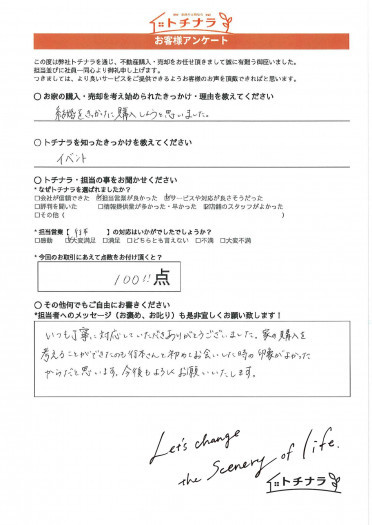 トチナラ
お客様アンケート
この度は弊社トチナラを通じ、不動産購入・売却をお任せ頂きまして誠に有難う御座いました。
担当並びに社員一同心より御礼申し上げます。
つきましては、より良いサービスをご提供できるようお客様のお声を頂戴できればと思います。
〇 お家の購入・売却を考え始められたきっかけ・理由を教えてください
結婚をきっかけに購入しようと思いました。
〇 トチナラを知ったきっかけを教えてください
イベント
〇 トチナラ・担当の事をお聞かせください
*なぜトチナラを選ばれましたか?
□会社が信頼できた ☑担当営業が良かった ☑サービスや対応が良さそうだった
□評判を聞いた □情報提供量が多かった・早かった ☑店舗のスタッフがよかった
□その他( )
*担当営業【 】の対応はいかがでしたでしょうか?
□感動 ☑大変満足 □満足 □どちらとも言えない □不満 □大変不満
*今回のお取引にあえて点数をお付け頂くと?
100 点
〇 その他何でもご自由にお書きください
*担当者へのメッセージ(お褒め、お叱り)も是非宜しくお願い致します!
いつも丁寧に対応していただきありがとうございました。家の購入を
考えることができたのも さんと初めてお会いした時の印象がよかった
からだと思います。今後もよろしくお願いいたします。
Let's change
the Scenery of life.
トチナラ